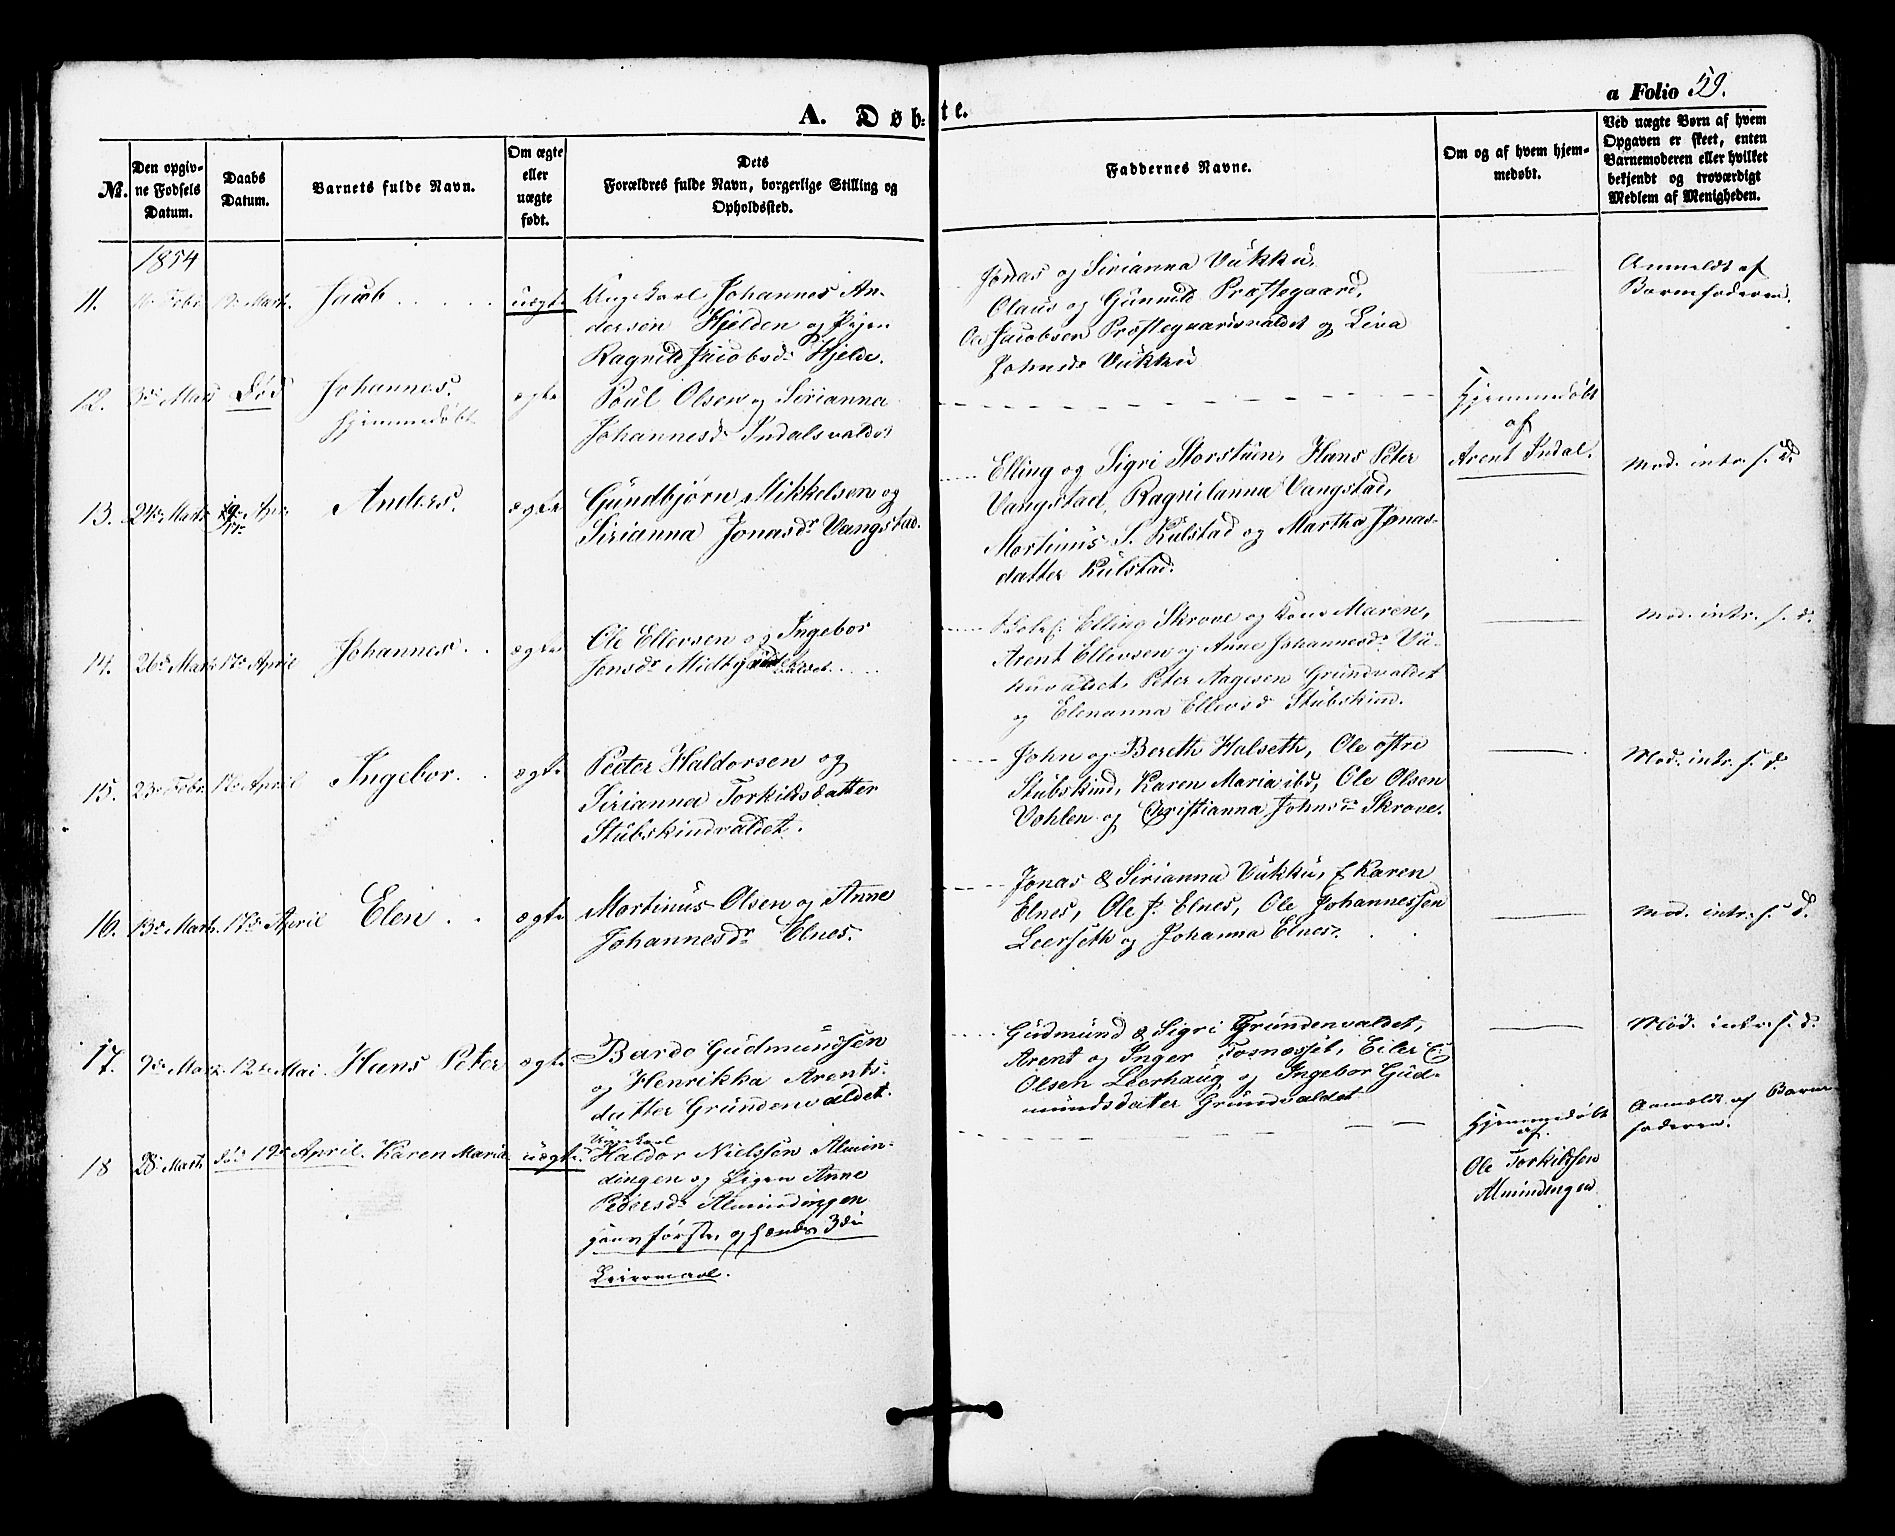 A. Døbte.
a Folio 59.
No.
Den opgivne Fødsels Datum.
Daabs Datum.
Barnets fulde Navn.
Om ægte eller uægte født.
Dets Forældres fulde Navn, borgerlige Stilling og Opholdssted.
Faddernes Navne.
Om og af hvem hjemmedøbt.
Ved uægte Børn af hvem Opgaven er skeet, enten Barnemoderen eller hvilket bekjendt og troværdigt Medlem af Menigheden.
1854
11. Febr. Marts. Jacob uægte
Ungekarl Johannes An-
dersen Hjelden og Pigen
Ragnild Jacobsdr Hjelde.
Jonas og Sirianna Vukku,
Olaus og Gunnild Præstegaard,
Jacobsen Præstegaardsvaldet og Lina
Johnsd Vukku
Anmeldt af
Barnefaderen.
12. 3de Marts Død Johannes. ægte
Hjemmedøbt
Poul Olsen og Sirianna
Johannesdr Indalsvaldet
Hjemmedøbt
af
Arent Indal.
13. 24de Marts Apr. Anders. ægte
Gundbjørn Mikkelsen og
Sirianna Jonasdr Vangstad.
Elling og Sigri Storstuen, Hans Peter
Vangstad, Ragnilanna Vangstad,
Mortinus S. Kulstad og Martha Jonas-
datter Kulstad.
Mod. intr. s. d.
14. 26de Marts 17de April Johannes. ægte
Ole Ellevsen og Ingebor
Jensdr
Elling Skrove og Kone Maren,
Arent Ellevsen og Anne Johannesdr Vu-
kuvaldet, Peter Aagesen Grundvaldet
og Elenanna Ellevsd Stubskind.
Mod. intr. s. d.
15. 23de Febr. 17de April Ingebor. ægte
Peter Haldorsen og
Sirianna Torkildsdatter
Stubskindvaldet.
John og Bereth Halseth, Ole østre
Stubskind, Karen Maria ibd, Ole Olsen
Vohlen og Christianna Johnsdr Skrove.
Mod. intr. s. d.
16. 13de Marts. 17de April Elen. ægte
Mortinus Olsen og Anne
Johannesdr Elnes.
Jonas & Sirianna Vukku, Karen
Elnes, Ole J. Elnes, Ole Johannessen
Leerseth og Johanna Elnes.
Mod. intr. s. d.
17. 9de Marts. 12te Mai Hans Peter ægte
Bardo Gudmundsen
og Henrikka Arents-
datter Grundenvaldet.
Gudmund & Sigri Grundenvaldet,
Arent og Inger Tosnæsset, Eiler
Olsen Leerhaug og Ingebor Gud-
mundsdatter Grundvaldet
Mod. intr. s. d.
18 28de Marts Død 19de April. Karen Maria. uægte
Ungekarl
Haldor Nielssen Almin-
dingen og Pigen Anne
Pedersdr Almindingen
Hans første, og hendes 3die
Leiermaal.
Hjemmedøbt
af
Ole Torkildsen
Almindingen
Anmeldt af Barne-
faderen.